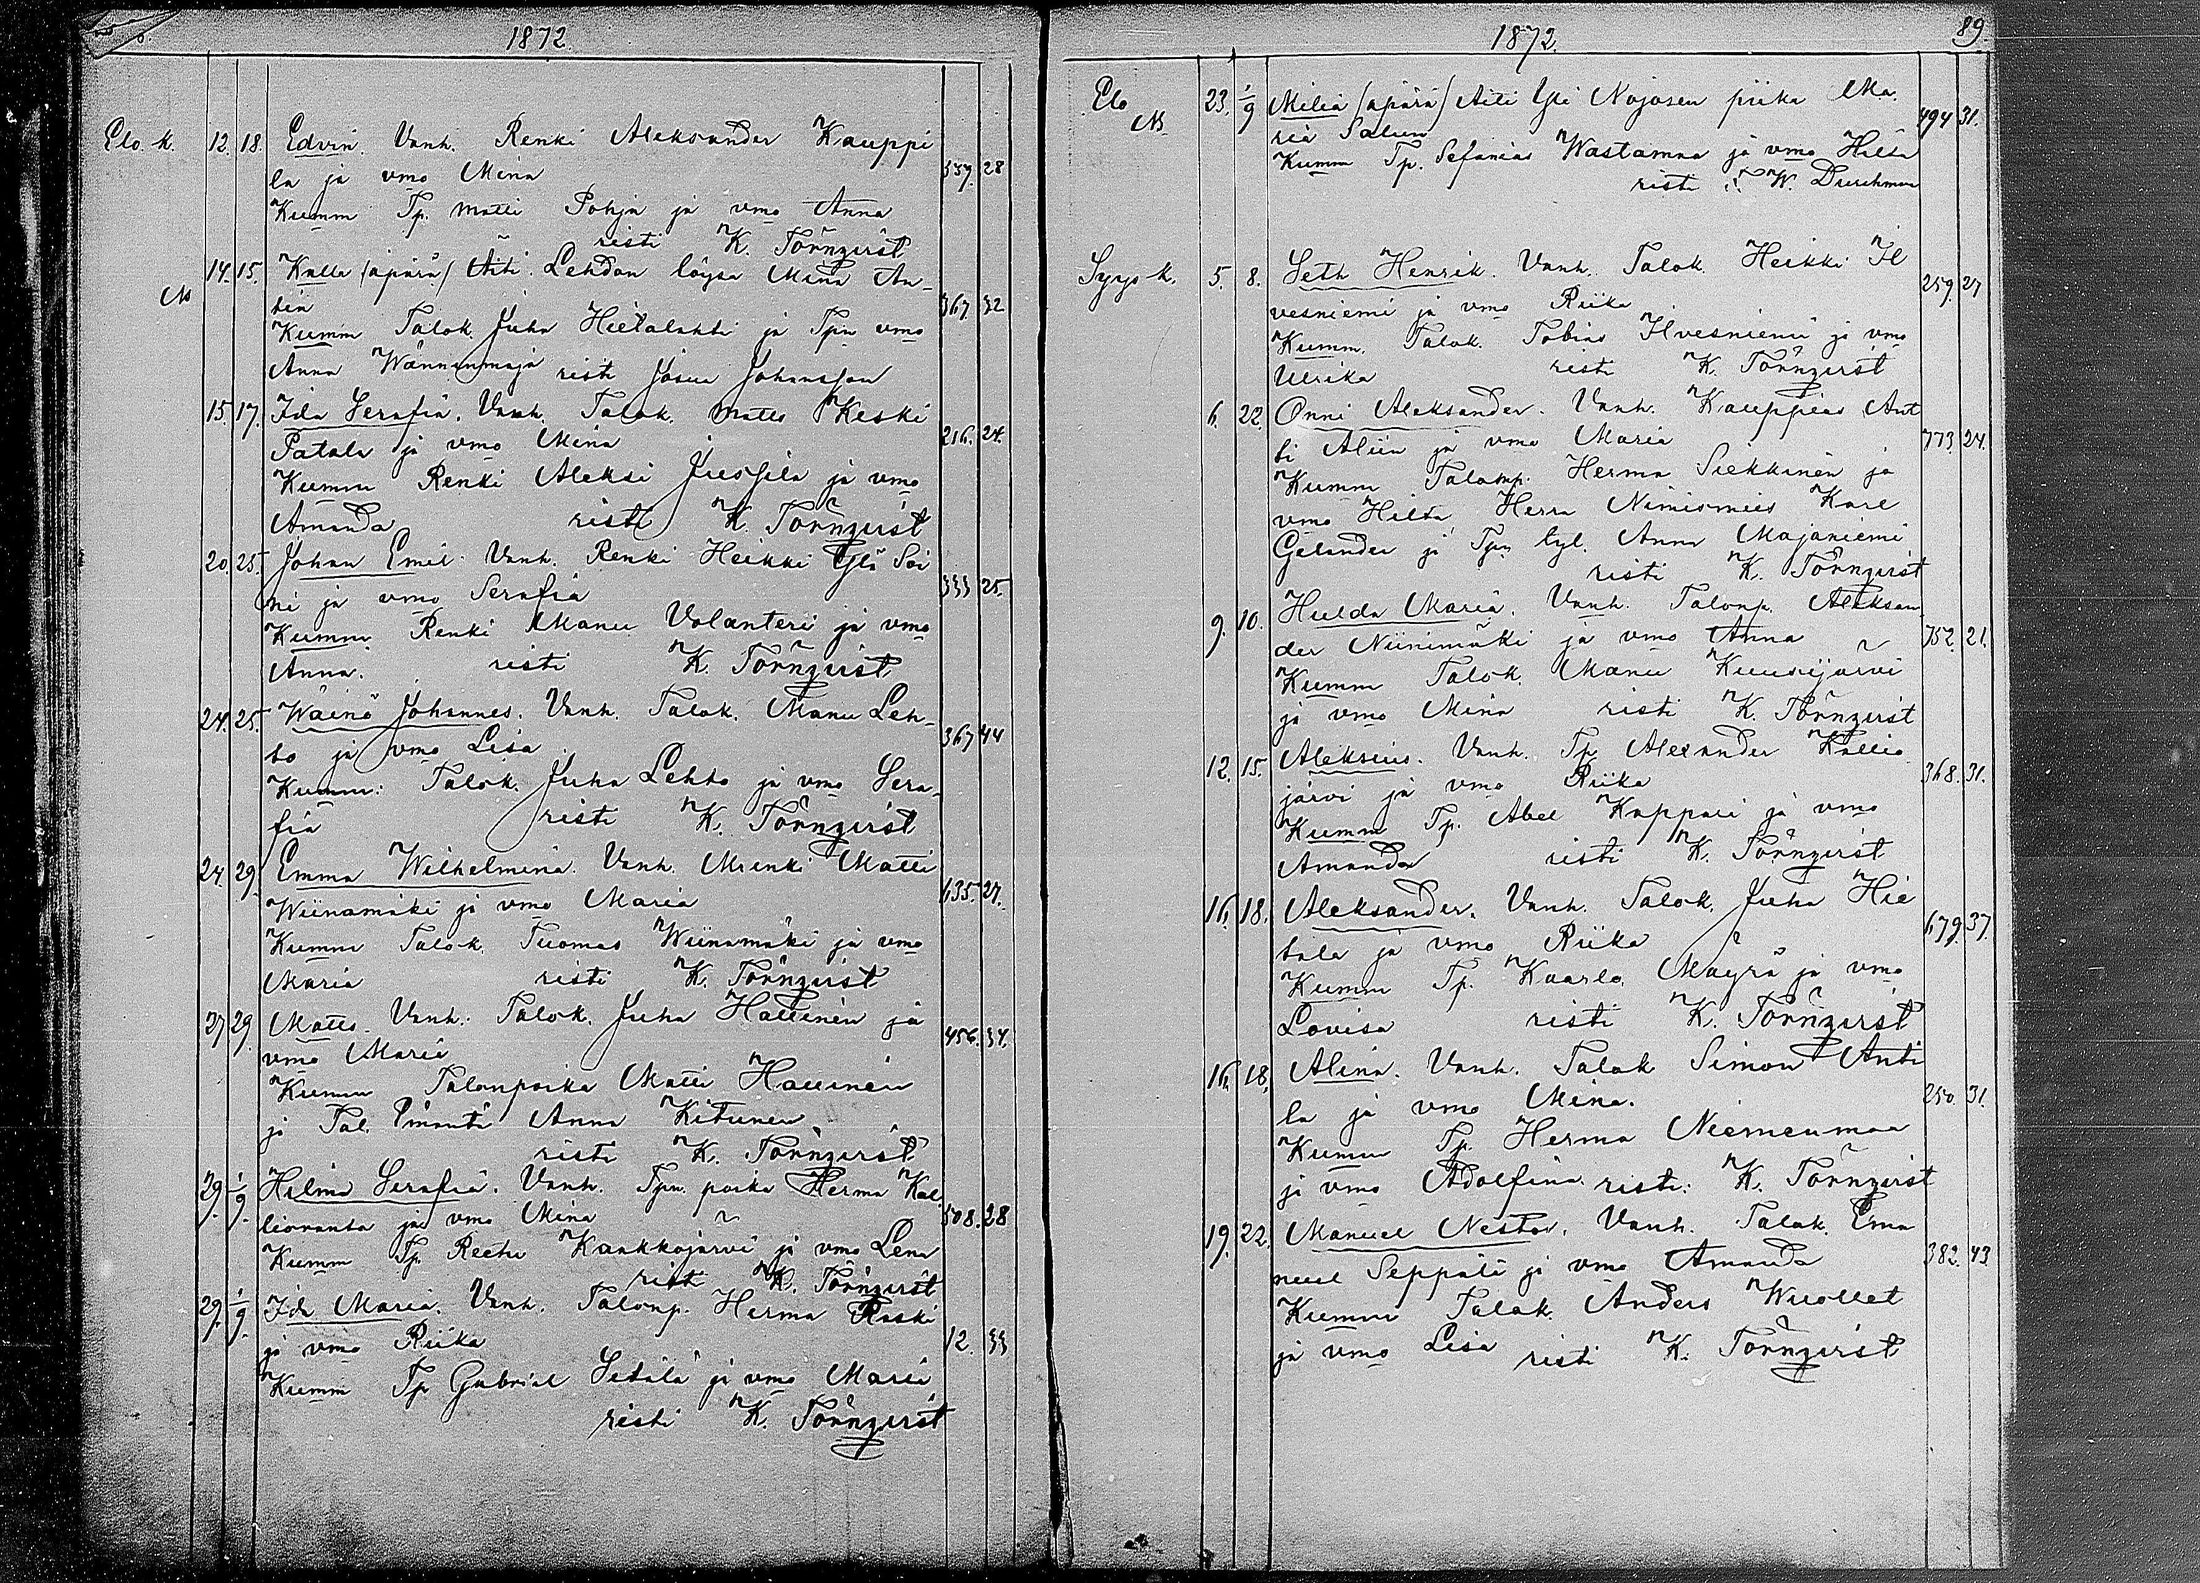 1872
Elo k. 12. 18. Edvin. Vanh. Renki Aleksander Kauppi
la ja vmo Mina 559. 28
Kumm Tp. Matti Pohja ja vmo Anna
risti K. Törnqvist
14. 15. Kalle (äpärä) Äiti Lehdon löysä Mina An-
tin 367 32
Kumm Talok. Juha Hietalahti ja Tpn vmo
Anna Wännenmaja risti Josua Johansson
15. 17. Ida Serafia. Vanh. Talok. Matts Keski
Patala ja vmo Mina 216. 24.
Kumm Renki Aleksi Jussila ja vmo
Amanda risti K. Törnqvist
20. 25. Johan Emil. Vanh. Renki Heikki Yli Soi
ni ja vmo Serafia 333 25.
Kumm Renki Manu Volanteri ja vmo
Anna. risti K. Törnqvist
24. 25. Wäinö Johannes. Vanh. Talok. Manu Leh-
to ja vmo Lisa 367 44
Kumm: Talok. Juha Lehto ja vmo Sera-
fia risti K. Törnqvist
24. 29. Emma Wilhelmina. Vanh. Mrenki Matti
Wiinamäki ja vmo Maria 635. 27.
Kumm Talok. Tuomas Wiinamäki ja vmo
Maria risti K. Törnqvist
27 29. Matts. Vanh. Talok. Juha Hallinen ja
vmo Maria 456. 34.
Kumm Talonpoika Matti Hallinen
ja Tal. Emäntä Anna Kitunen
risti K. Törnqvist
29. 1/9. Hilma Serafia. Vanh. Tpn. poika Herma Kal
lioranta ja vmo Mina 508. 28
Kumm Tp. Reetu Kaakkojärvi ja vmo Lena
risti K. Törnqvist
29. 1/9. Ida Maria. Vanh. Talonp. Herma Raski
ja vmo Riika 12. 33
Kumm Tp Gabriel Setälä ja vmo Maria
risti K. Törnqvist
1872. 89.
Elo 23. 1/9 Milia (äpärä) Äiti Yli Nojosen piika Ma
ria Salun 494 31.
Kumm Tp. Sefanias Wastamaa ja vmo Hilda
risti W. Durchman
Syys k. 5. 8. Seth Henrik. Vanh. Talok. Heikki Il
vesniemi ja vmo Riika 259. 27
Kumm. Talok. Tobias Ilvesniemi ja vmo
Ulrika risti K. Törnqvist
6. 22. Onni Aleksander. Vanh. Kauppias Ant
ti Aliin ja vmo Maria 773. 24.
Kumm Talonp. Herma Siekkinen ja
vmo Hilda, Herra Nimismies Karl
Gelander ja Tpn tyt. Anna Majaniemi
risti K. Törnqvist
9. 10. Hulda Maria. Vanh. Talonp. Aleksan
der Niinimäki ja vmo Anna 752. 21.
Kumm Talok. Manu Kuusijärvi
ja vmo Mina risti K. Törnqvist
12. 15. Aleksius. Vanh. Tp Alexander Kallio
järvi ja vmo Riika 368. 31.
Kumm Tp. Abel Kappali ja vmo
Amanda risti K. Törnqvist
16. 18. Aleksander. Vanh. Talok. Juha Hie
tala ja vmo Riika 679. 37.
Kumm Tp. Kaarlo Mäyrä ja vmo
Lovisa risti K. Törnqvist
16. 18. Alina. Vanh. Talok Simon Anti
la ja vmo Mina. 250. 31.
Kumm Tp. Herma Niemenmaa
ja vmo Adolfina risti: K. Törnqvist
19. 22. Manuel Nestor. Vanh. Talok. Ema
nuel Seppälä ja vmo Amanda 382. 43
Kumm Talok. Anders Wuollet
ja vmo Lisa risti K. Törnqvist